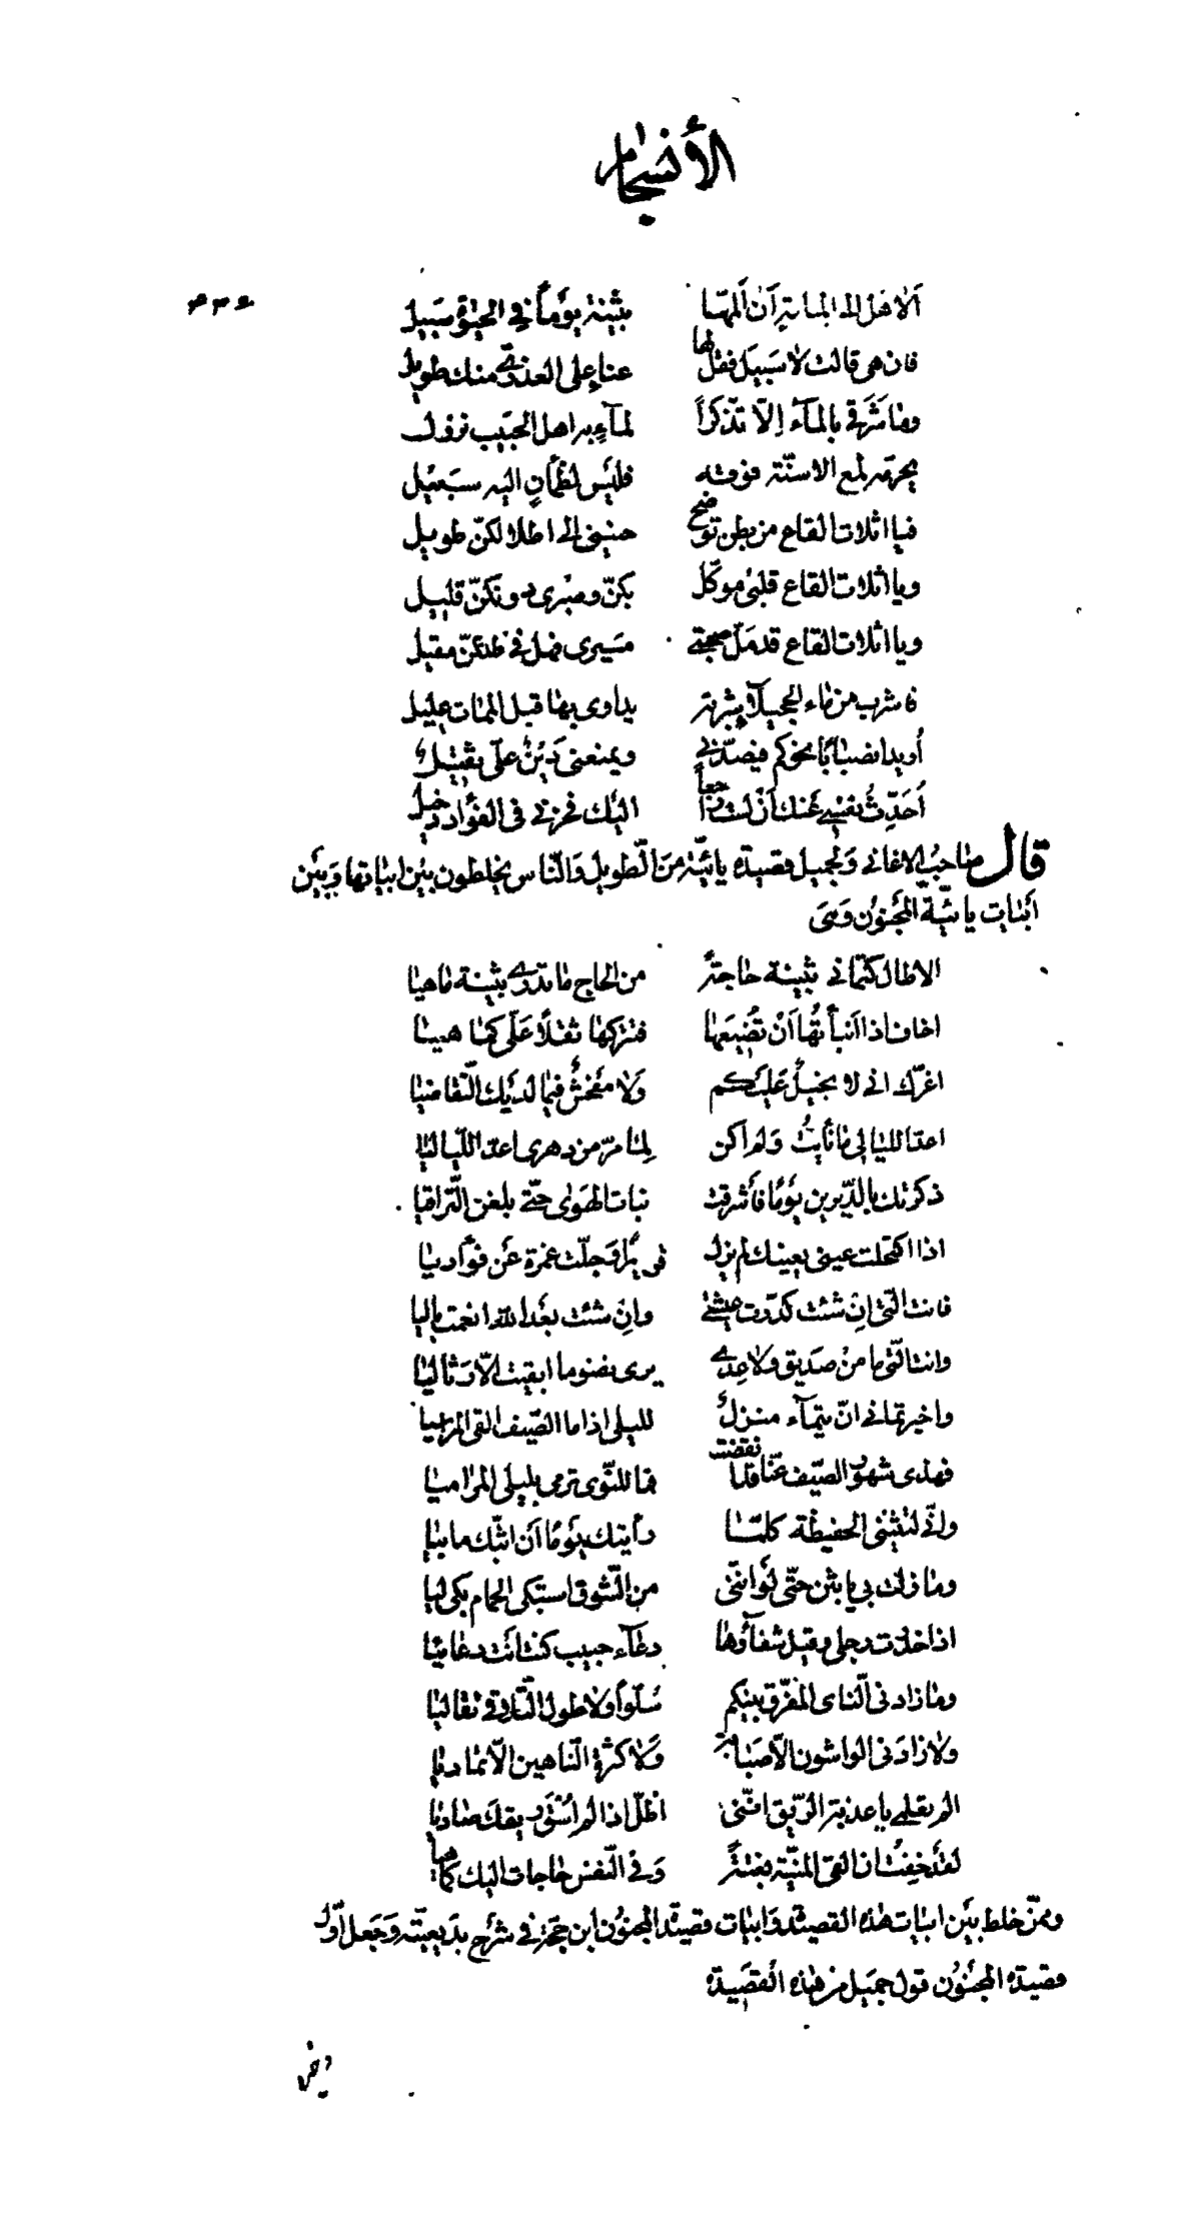 الأنسجام
٤٣٣
ألا هل الى المامة أن ألمها بثينة يوماً في الحيوة سبيل
فان هي قالت لا سبيل فقل لها عناء على العذري منك طويل
وما شرقي بالماء إلا تذكراً لماء به اهل الحبيب نزول
يحرمه لمع الاسنة فوقه فليس لظمأن اليه سبيل
فيا اثلات القاع من بطن توضح حنيني الى اطلالكن طويل
ويا اثلات القاع قلبي موكل بكن وصبري دونكن قليل
ويا اثلات القاع قد مل صحبتي مسيري فهل في ظلكن مقيل
فاشرب من ماء الحجيلاء شربة يداوى بها قبل الممات عليل
أريد انصبابًا نحوكم فيصدني ويمنعني دين علي ثقيل
أحدث نفسي عنك أن لست راجعاً اليك فحزني في الفؤاد دخيل
قال صاحب الاغاني ولجميل قصيدة يائية من الطويل والناس يخلطون بين ابياتها وبين
أبيات يائية المجنون وهي
الا طال كتماني بثينة حاجة من الحاج ما تدري بثينة ماهيا
اخاف اذا أنبأتها أن تضيعها فتتركها ثقلاً علي كما هيا
اغرك اني لا بخيل عليكم ولا مفحش فيما لديك التقاضيا
اعد الليالي ما نأيت ولم اكن لما مر من دهري اعد اللياليا
ذكرتك بالديرين يومًا فأشرقت بنات الهوى حتى بلغن التراقيا
اذا اكتحلت عيني بعينك لم يزل بخير وجلت غمرة عن فؤاديا
فانت التي إن شئت كدرت عيشتي وإن شئت بعد الله انعمت باليا
وانت التي ما من صديق ولا عدى يرى نضو ما ابقيت الا رثا ليا
واخبرتماني ان تيماء منزل لليلى اذا ما الصيف القى المراسيا
فهذى شهور الصيف عنا قد انقضت فما للنوى ترمى بليلى المراميا
واني لتثنيني الحفيظة كلما رأيتك يومًا أن ابثك ما بيا
وما زلت بي يا بثن حتى لو انني من الشوق استبكى الحمام بكى ليا
اذا خدرت رجلي وقيل شفاؤها دعاء حبيب كنت انت دعائيا
وما زادني النأي المفرق بينكم سلواً ولا طول التلاقي تقاليا
ولا زادني الواشون الا صبابة ولا كثرة الناهين الا تماديا
الم تعلمي يا عذبة الريق انني اظل اذا لم أسق ريقك صاديا
لقد خفت ان القى المنية بغتة وفي النفس حاجات اليك كما هيا
وممن خلط بين ابيات هذه القصيدة وابيات قصيدة المجنون ابن حجة في شرح بديعيته وجعل أول
قصيدة المجنون قول جميل من هذه القصيدة